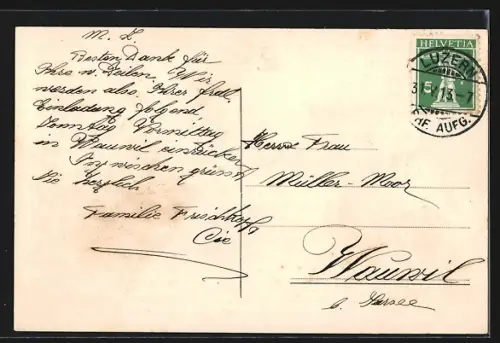 M. L.
Besten Dank für
Ihre w. Zeilen. Wir
werden also Ihrer frdl.
Einladung folgend
Sonntag Vormittag
in Wauwil einrücken
Inzwischen grüsst
Sie herzlich
Familie Frischkopf
HELVETIA
5
LUZERN
13.-7
BRF. AUFG.
Herrn u Frau
Müller-Moor
Wauwil
b. Sursee